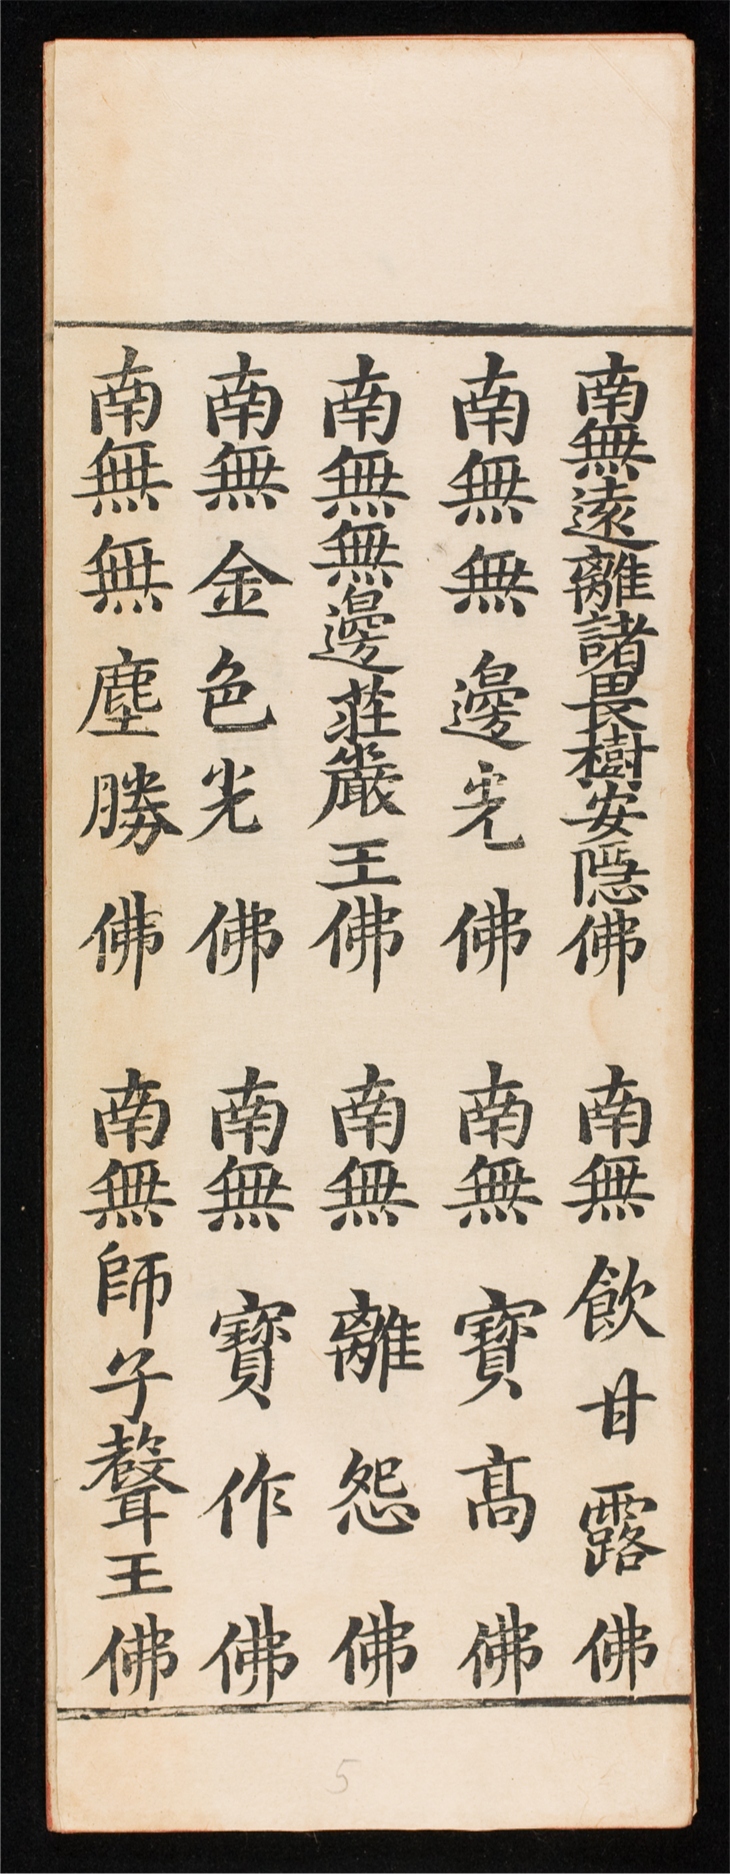 南無遠離諸畏樹安隱佛
南無飲甘露佛
南無無邊光佛
南無寶高佛
南無無邊莊嚴王佛
南無離怨佛
南無金色光佛
南無寶作佛
南無無塵勝佛
南無師子聲王佛
5